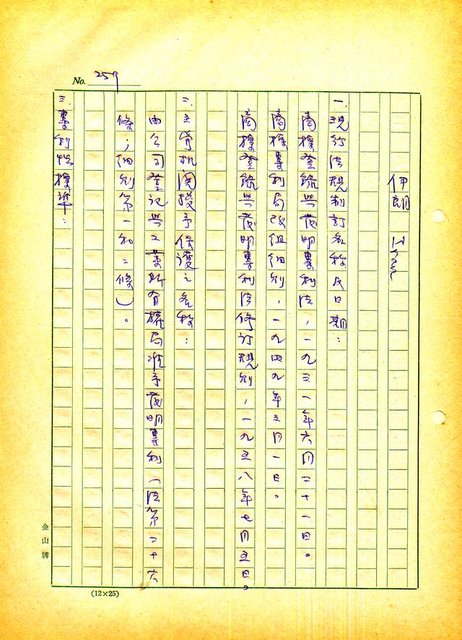 No. 259
伊朗 Iran
一、現行法規制訂名稱及日期：
商標登錄與發明專利法，一九三一年六月二十一日。
商標專利局改組細則，一九四九年五月一日。
商標登錄與發明專利法修訂規則，一九五八年七月五日。
二、主管機關授予保護之名稱：
由公司登記與工業所有權局准予發明專利（法第二十六
條；細則第一和二條）。
三、專利性標準：
金山牌
(12×25)